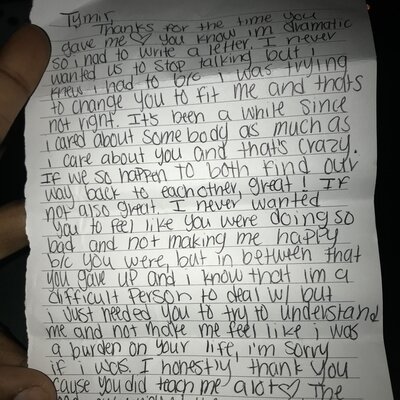 Tymir,
Thanks for the time you
gave me ♡ you know im dramatic
so i had to write a letter. I never
wanted us to stop talking but i
knew i had to b/c i was trying
to change you to fit me and thats
not right. It's been a while since
i cared about somebody as much as
i care about you and that's crazy.
If we so happen to both find our
way back to each other, great! If
not also great. I never wanted
you to feel like you were doing so
bad and not making me happy
b/c you were, but in between that
you gave up and i know that im a
difficult person to deal w/ but
i just needed you to try to understand
me and not make me feel like i was
a burden on your life, i'm sorry
if i was. I honestly thank you
cause you did teach me alot♡ The